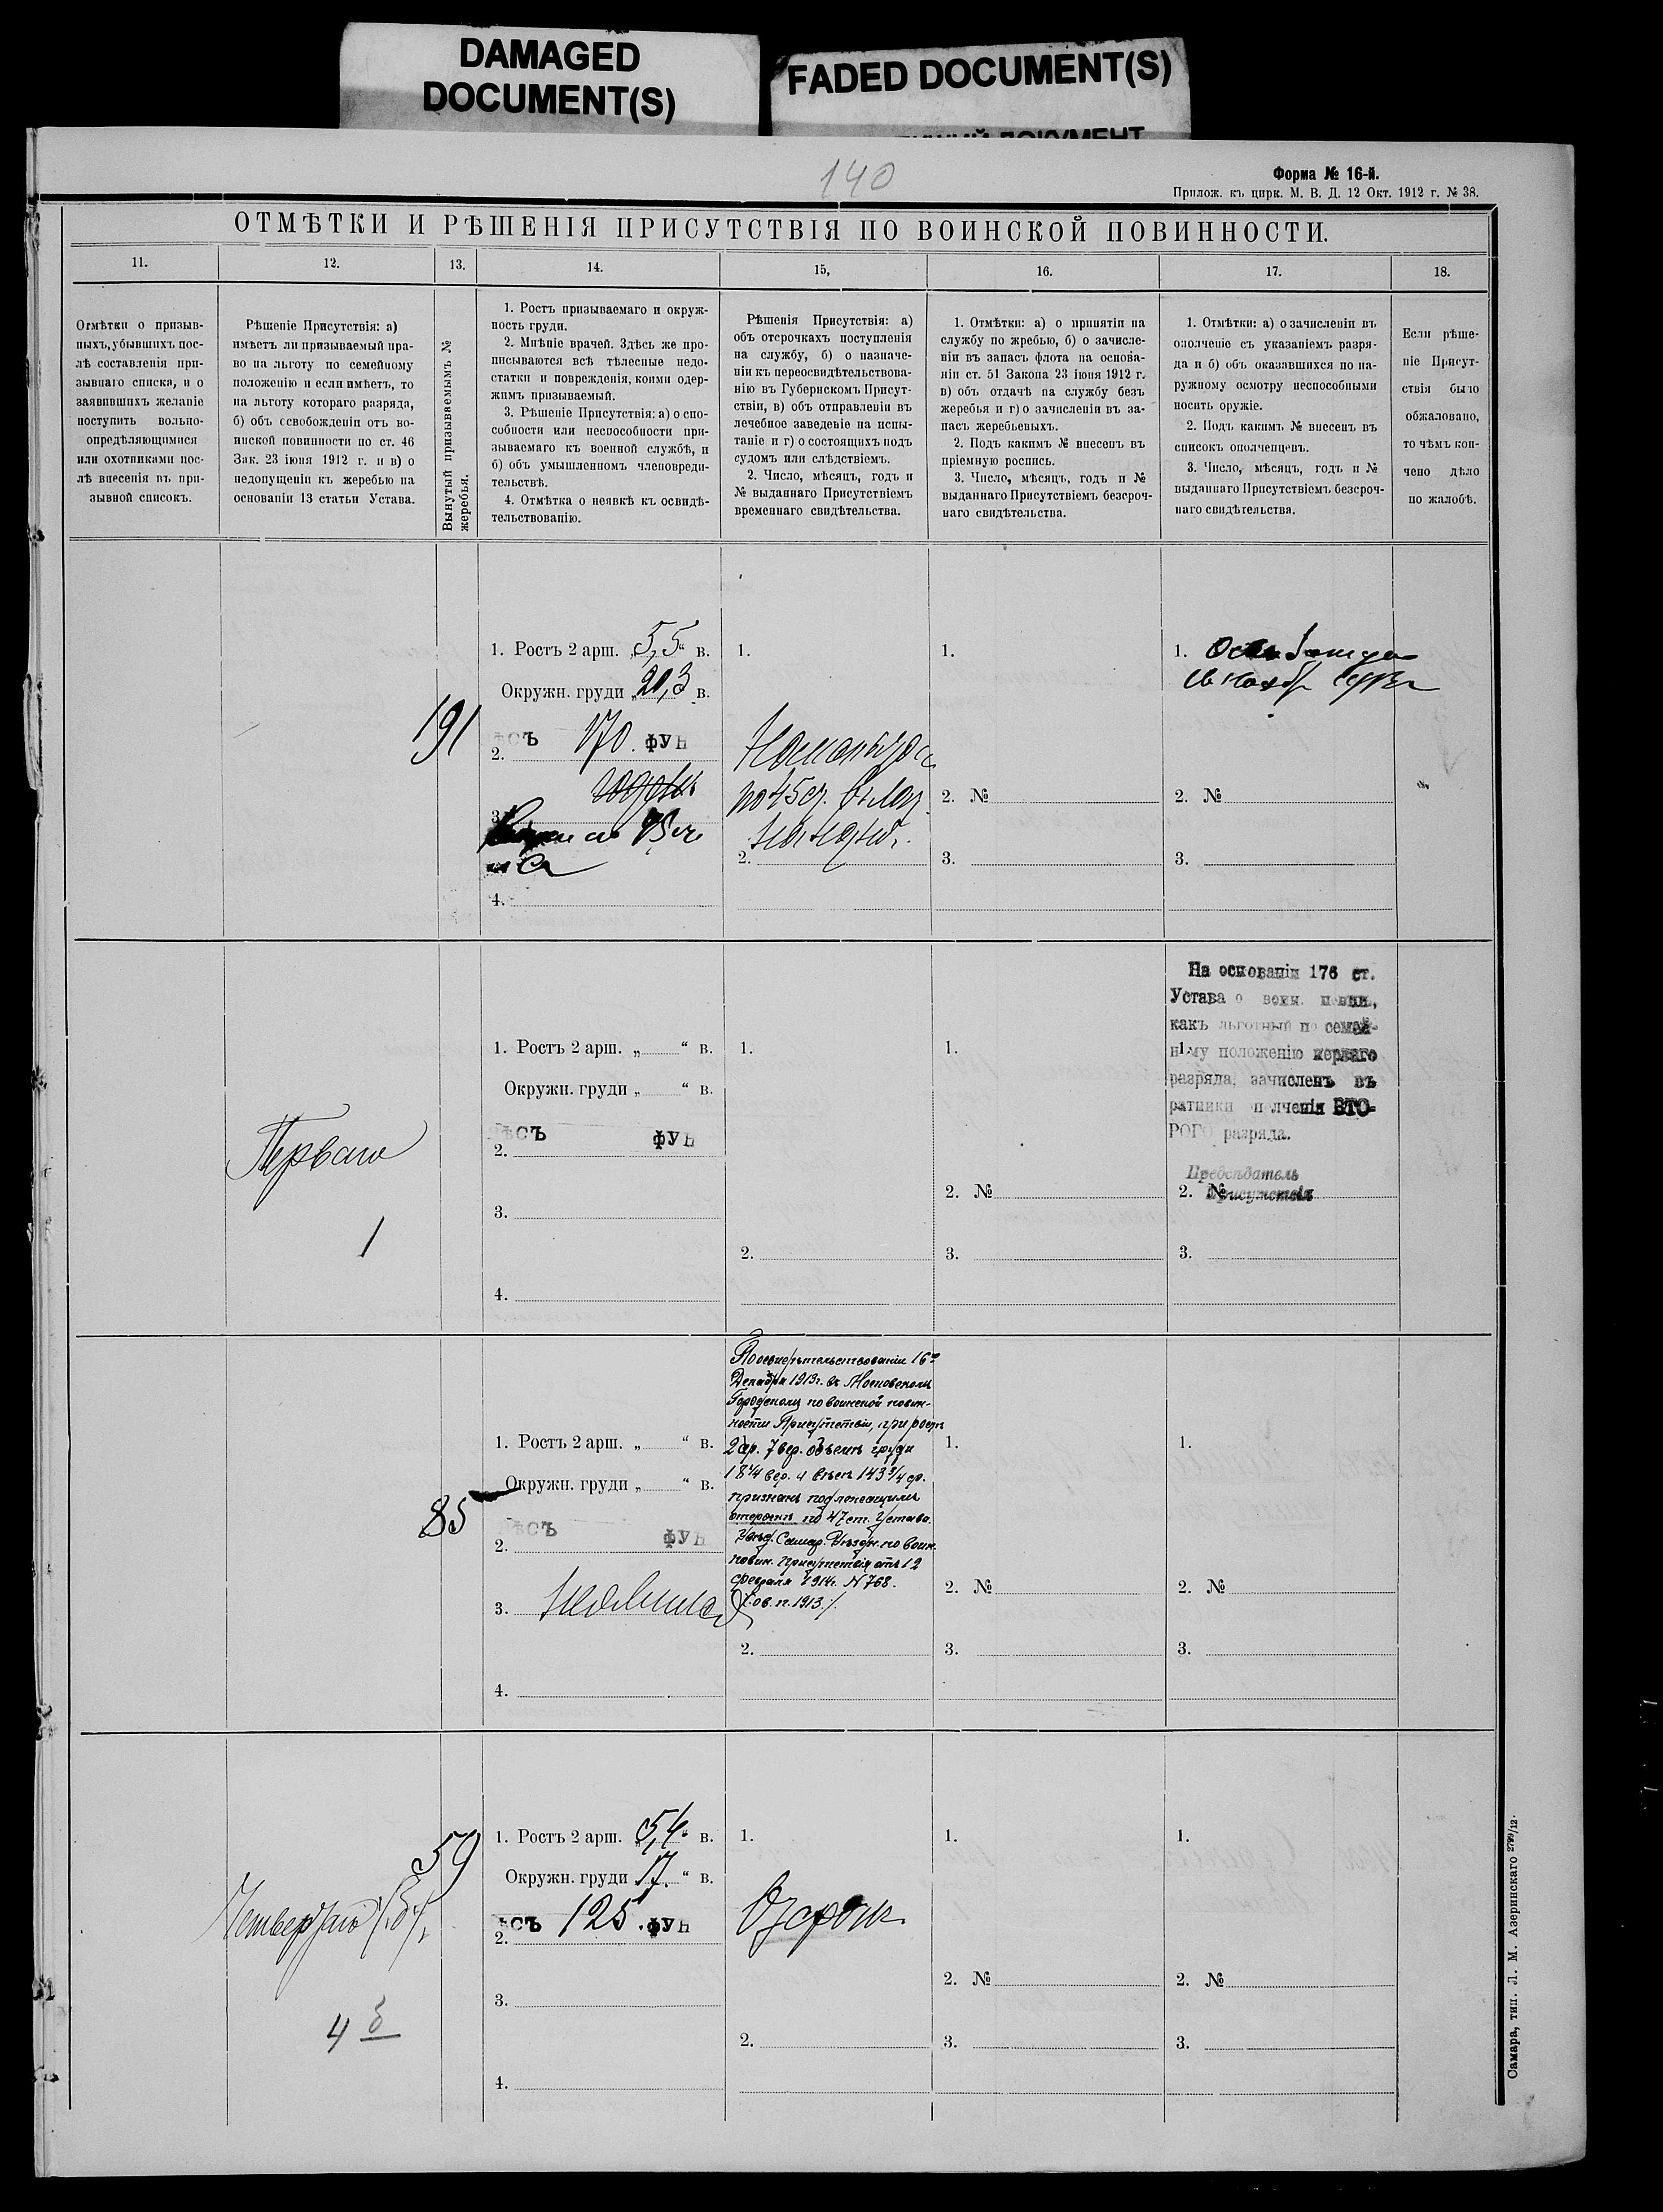 DAMAGED
DOCUMENT(S)
FADED DOCUMENT(S)
ДОКУМЕНТ
140
Форма № 16-й.
Прилож. къ цирк. М. В. Д. 12 Окт. 1912 г. № 38.
ОТМѢТКИ И РѢШЕНІЯ ПРИСУТСТВІЯ ПО ВОИНСКОЙ ПОВИННОСТИ.
11.
12.
13.
14.
15,
16.
17.
18.
Отмѣтки о призыв-
ныхъ, убывшихъ пос-
лѣ составленія при-
зывнаго списка, и о
заявившихъ желаніе
поступить вольно-
опредѣляющимися
или охотниками пос-
лѣ внесенія въ при-
зывной списокъ.
Рѣшеніе Присутствія: а)
имѣетъ ли призываемый пра-
во на льготу по семейному
положенію и если имѣетъ, то
на льготу котораго разряда,
б) объ освобожденіи отъ во-
инской повинности по ст. 46
Зак. 23 іюня 1912 г. и в) о
недопущеніи къ жеребью на
основаніи 13 статьи Устава.
Вынутый призываемымъ №
жеребья.
1. Ростъ призываемаго и окруж-
ность груди.
2. Мнѣніе врачей. Здѣсь же про-
писываются всѣ тѣлесные недо-
статки и поврежденія, коими одер-
жимъ призываемый.
3. Рѣшеніе Присутствія: а) о спо-
собности или неспособности при-
зываемаго къ военной службѣ, и
б) объ умышленномъ членовреди-
тельствѣ.
4. Отмѣтка о неявкѣ къ освидѣ-
тельствованію.
Рѣшенія Присутствія: а)
объ отсрочкахъ поступленія
на службу, б) о назначе-
ніи къ переосвидѣтельствова-
нію въ Губернскомъ Присут-
ствіи, в) объ отправленіи въ
лечебное заведеніе на испы-
таніе и г) о состоящихъ подъ
судомъ или слѣдствіемъ.
2. Число, мѣсяцъ, годъ и
№ выданнаго Присутствіемъ
временнаго свидѣтельства.
1. Отмѣтки: а) о принятіи на
службу по жребью, б) о зачисле-
ніи въ запасъ флота на основа-
ніи ст. 51 Закона 23 іюня 1912 г.
в) объ отдачѣ на службу безъ
жеребья и г) о зачисленіи въ за-
пасъ жеребьевыхъ.
2. Подъ какимъ № внесенъ въ
пріемную роспись.
3. Число, мѣсяцъ, годъ и №
выданнаго Присутствіемъ безсроч-
наго свидѣтельства.
1. Отмѣтки: а) о зачисленіи въ
ополченіе съ указаніемъ разря-
да и б) объ оказавшихся по на-
ружному осмотру неспособными
носить оружіе.
2. Подъ какимъ № внесенъ въ
списокъ ополченцевъ.
3. Число, мѣсяцъ, годъ и №
выданнаго Присутствіемъ безсроч-
наго свидѣтельства.
Если рѣше-
ніе Присут-
ствія было
обжаловано,
то чѣмъ кон-
чено дѣло
по жалобѣ.
191
1. Ростъ 2 арш. „5,5“ в.
Окружн. груди „20,3 в.
ѣсъ 170. фун
2.
годенъ
3.
4.
1.
по 45 ст.
2.
1.
2. №
3.
1.
2. №
3.
Перваго
1
1. Ростъ 2 арш. „ “ в.
Окружн. груди „ “ в.
ѣсъ фун
2.
3.
4.
1.
2.
1.
2. №
3.
На основаніи 176 ст.
Устава о воин. повин,
какъ льготный по семей-
1.
ному положенію перваго
разряда, зачисленъ въ
ратники ополченія ВТО-
РОГО разряда.
Предсѣдатель
Присутствія
2. №
3.
85
1. Ростъ 2 арш. „ “ в.
Окружн. груди „ “ в.
ѣсъ фун
2.
3.
4.
По освидѣтельствованіи 16го
Декабря 1913 г. въ Московскомъ
Городскомъ по воинской повин-
ности Присутствіи, при ростѣ
2 ар. 7 вер. объемъ груди
18 1/4 вер. и вѣсъ 143 3/4 ф.
признанъ подлежащимъ
отсрочкѣ по 47 ст. Устава.
Увѣд. Самар. Уѣздн. по воин.
повин. присутствія отъ 12
февраля 1914 г. N 768.
2.
1.
2. №
3.
1.
2. №
3.
59
Четвертаго /б/.
4 б
1. Ростъ 2 арш. „5,4“ в.
Окружн. груди „17.“ в.
ѣсъ 125. фун
2.
3.
4.
1.
2.
1.
2. №
3.
1.
2. №
3.
Самара, тип. Л. М. Азеринскаго 2799/12.